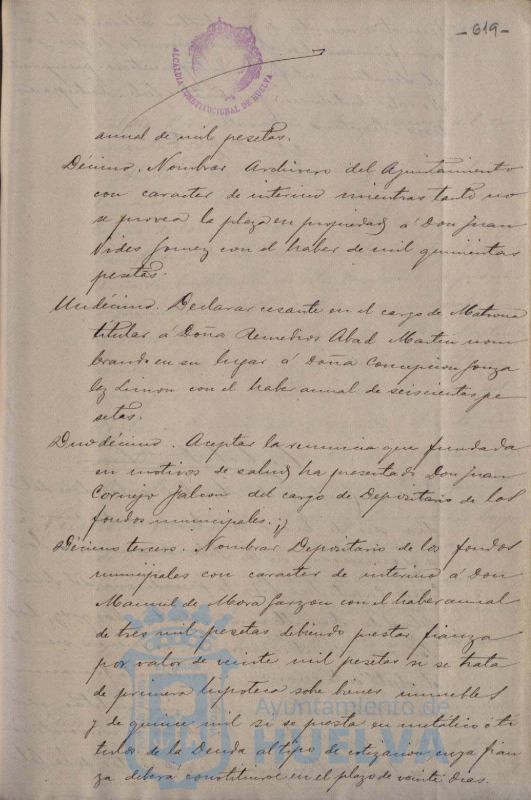 -619-
ALCALDIA CONSTITUCIONAL DE HUELVA
anual de mil pesetas.
Décimo. Nombrar Archivero del Ayuntamiento
con caracter de interino mientras tanto no
se provea la plaza en propiedad á Don Juan
Vides Gomez con el haber de mil quinientas
pesetas.
Undécimo. Declarar cesante en el cargo de Matrona
titular á Doña Remedios Abad Martin nom
brando en su lugar á Doña Concepcion Gonza
lez Limon con el haber anual de seiscientas pe
setas.
Duodécimo. Aceptar la renuncia que fundada
en motivos de salud ha presentado Don Juan
Cornejo Jalcon del cargo de Depositario de los
fondos municipales. y
Décimo tercero. Nombrar Depositario de los fondos
municipales con caracter de interino á Don
Manuel de Mora Garzon con el haber anual
de tres mil pesetas debiendo prestar fianza
por valor de veinte mil pesetas si se trata
de primera hipoteca sobre bienes inmuebles
y de quince mil si se presta en metálico ó ti
tulos de la Deuda al tipo de cotizacion, cuya fian
za deberá constituirse en el plazo de veinte dias.
Ayuntamiento de
HUELVA